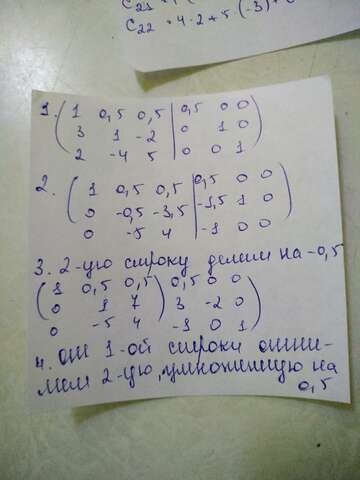 C₂₁
C₂₂ = 4·2+5·(-3)+
1. ( 1 0,5 0,5 | 0,5 0 0 )
3 1 -2 | 0 1 0
2 -4 5 | 0 0 1
2. ( 1 0,5 0,5 | 0,5 0 0 )
0 -0,5 -3,5 | -1,5 1 0
0 -5 4 | -1 0 0
3. 2-ую строку делим на -0,5
( 1 0,5 0,5 ) 0,5 0 0 )
0 1 7 3 -2 0
0 -5 4 -1 0 1
4. от 1-ой строки отни-
маем 2-ую, умноженную на
0,5